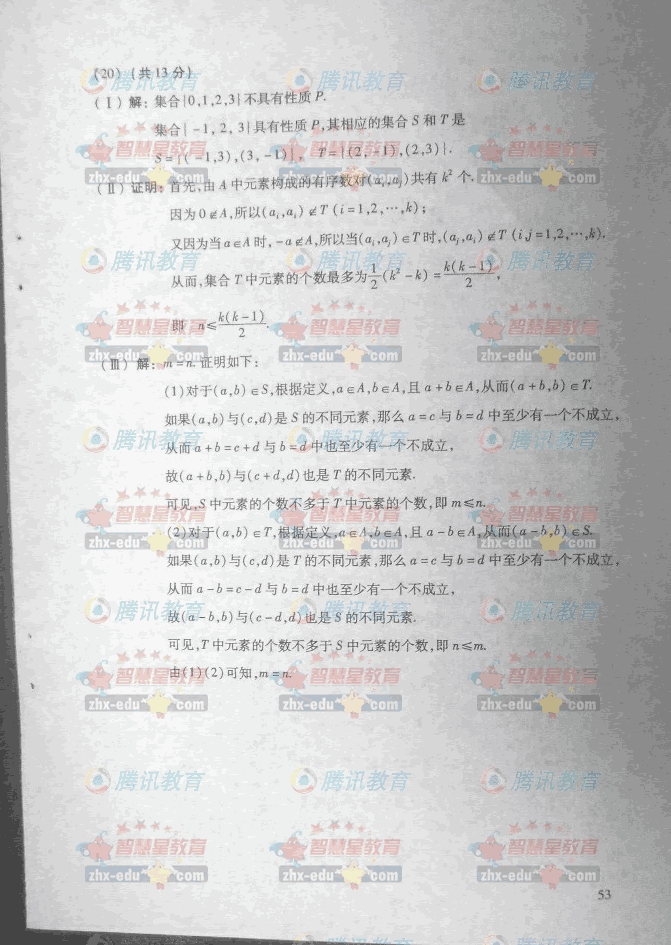 (20)(共13分)
(Ⅰ)解:集合{0,1,2,3}不具有性质P.
集合{-1,2,3}具有性质P,其相应的集合S和T是
S={(-1,3),(3,-1)}, T={(2,-1),(2,3)}.
(Ⅱ)证明:首先,由A中元素构成的有序数对(aᵢ,aⱼ)共有k²个.
因为0∉A,所以(aᵢ,aᵢ)∉T(i=1,2,⋯,k);
又因为当a∈A时,-a∉A,所以当(aᵢ,aⱼ)∈T时,(aⱼ,aᵢ)∉T(i,j=1,2,⋯,k).
从而,集合T中元素的个数最多为1/2(k²-k)=k(k-1)/2,
即 n≤k(k-1)/2.
(Ⅲ)解:m=n.证明如下:
(1)对于(a,b)∈S,根据定义,a∈A,b∈A,且a+b∈A,从而(a+b,b)∈T.
如果(a,b)与(c,d)是S的不同元素,那么a=c与b=d中至少有一个不成立,
从而a+b=c+d与b=d中也至少有一个不成立,
故(a+b,b)与(c+d,d)也是T的不同元素.
可见,S中元素的个数不多于T中元素的个数,即m≤n.
(2)对于(a,b)∈T,根据定义,a∈A,b∈A,且a-b∈A,从而(a-b,b)∈S.
如果(a,b)与(c,d)是T的不同元素,那么a=c与b=d中至少有一个不成立,
从而a-b=c-d与b=d中也至少有一个不成立,
故(a-b,b)与(c-d,d)也是S的不同元素.
可见,T中元素的个数不多于S中元素的个数,即n≤m.
由(1)(2)可知,m=n.
腾讯教育
智慧星教育
zhx-edu com
53